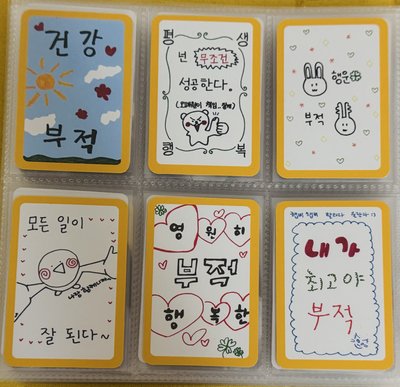 건강
부적
평생
넌 무조건
성공한다.
행복
행운
부적
모든 일이
잘 된다~
영원히
부적
행복한
내가
최고야
부적